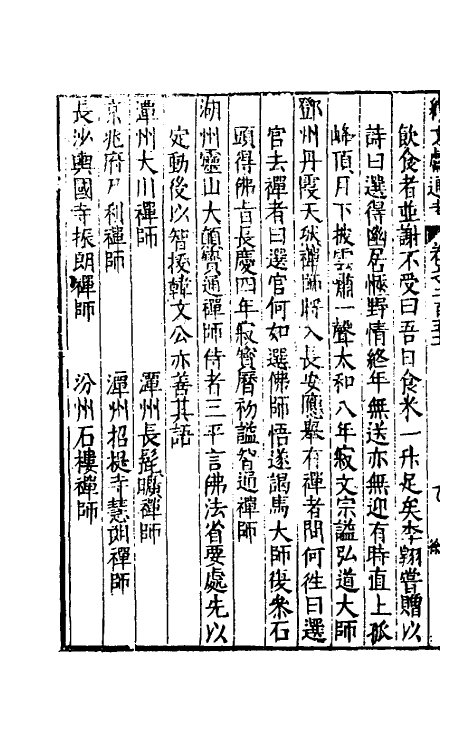 續文獻通考 卷之二百五十
飲食者並謝不受曰吾日食米一升足矣李翱嘗贈以
詩曰選得幽居愜野情終年無送亦無迎有時直上孤
峰頂月下披雲嘯一聲太和八年寂文宗謚弘道大師
鄧州丹霞天然禪師將入長安應舉有禪者問何徃曰選
官去禪者曰選官何如選佛師悟遂謁馬大師復參石
頭得佛旨長慶四年寂寳曆初謚智通禪師
湖州靈山大顛寳通禪師侍者三平言佛法省要處先以
定動後以智㧞韓文公亦善其語
潭州大川禪師 潭州長髭曠禪師
京兆府尸利禪師 潭州招提寺慧朗禪師
長沙興國寺振朗禪師 汾州石樓禪師